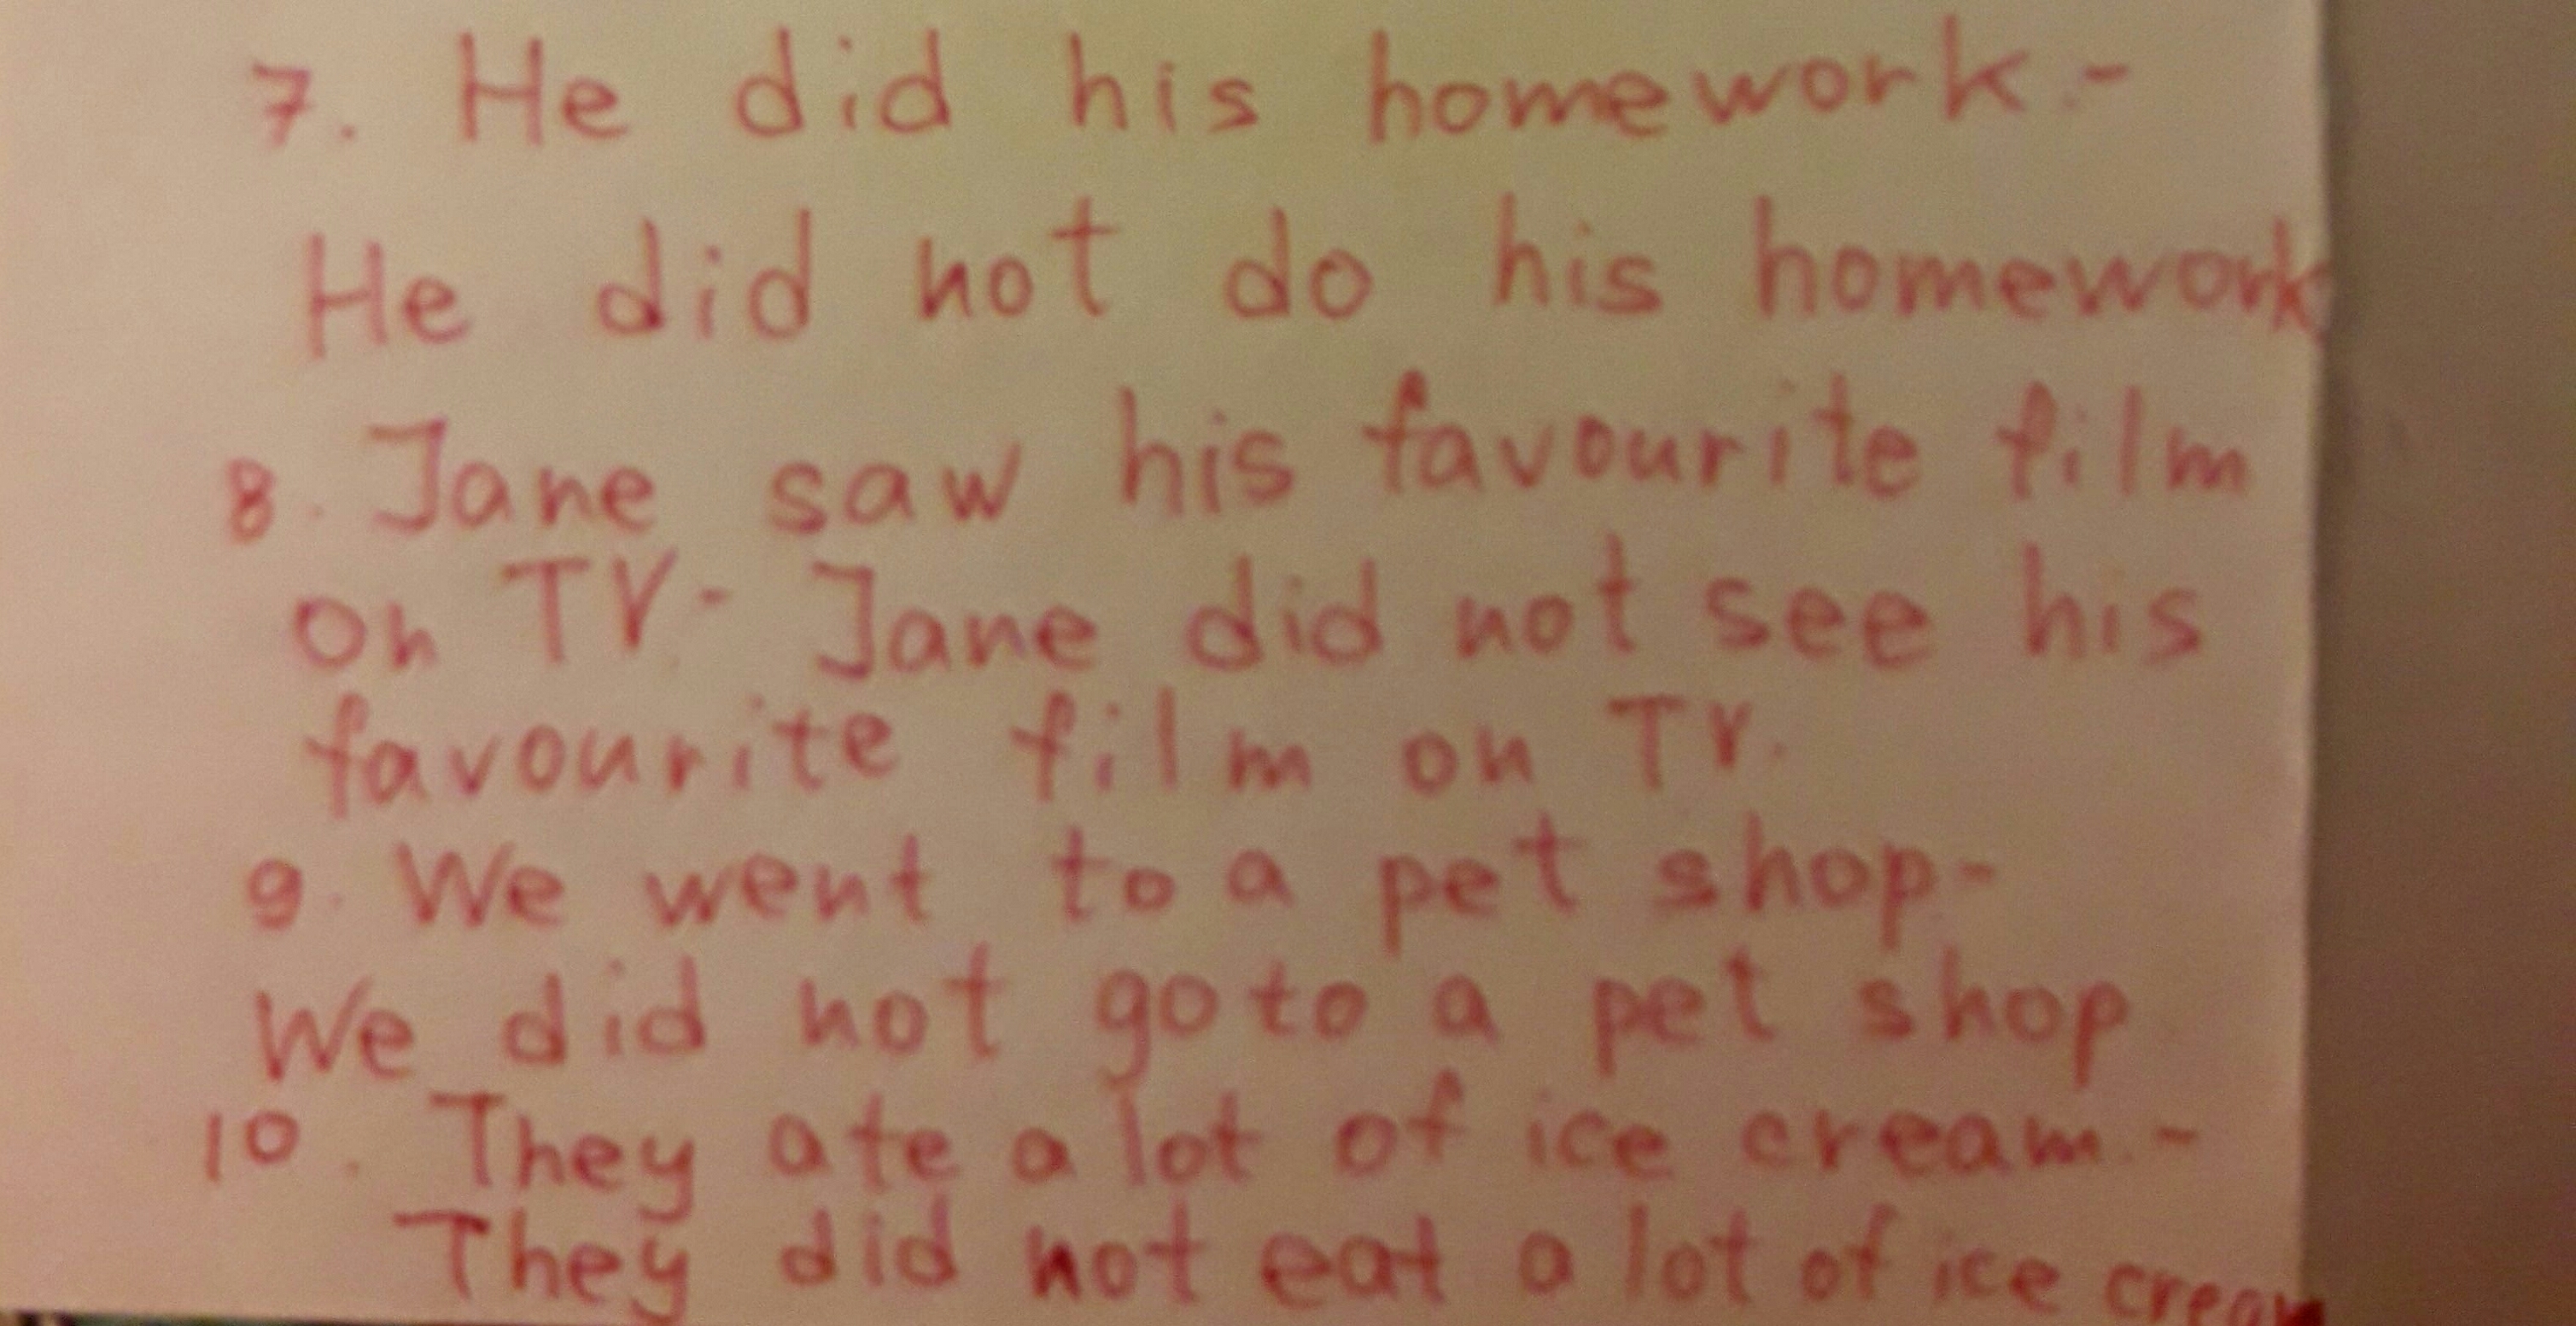 7. He did his homework.-
He did not do his homework
8. Jane saw his favourite film
on TV.- Jane did not see his
favourite film on TV.
9. We went to a pet shop-
We did not go to a pet shop
10. They ate a lot of ice cream.-
They did not eat a lot of ice cream